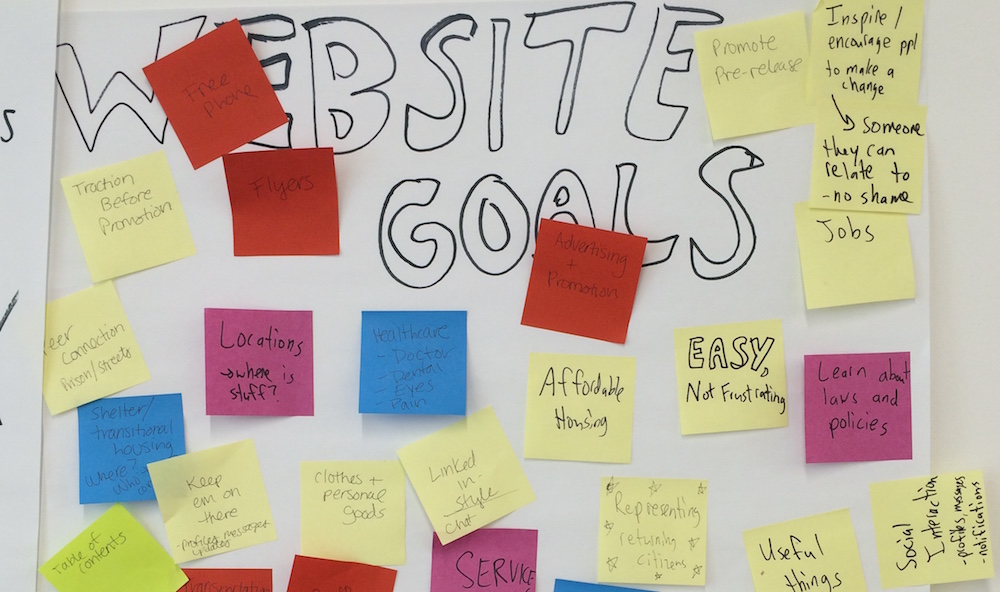 WEBSITE
GOALS
Free
phone
Promote
Pre-release
Inspire /
encourage ppl
to make a
change
→ Someone
they can
relate to
- no shame
Traction
Before
Promotion
Flyers
Jobs
Advertising
+
Promotion
Connection
Prison/streets
Locations
→ where is
stuff?
Healthcare
- Doctor
- Dental
- Eyes
- Pain
Affordable
Housing
EASY,
Not Frustrating
Learn about
laws and
policies
Shelter/
transitional
housing
where?
who
Keep
em on
there
- profiles messages
updates
Clothes +
personal
goods
Linked
in -
style
Chat
Representing
returning
citizens
Social
Interaction
- profiles, messages
- notifications
Table of
Contents
SERVICE
Useful
things
Transportation